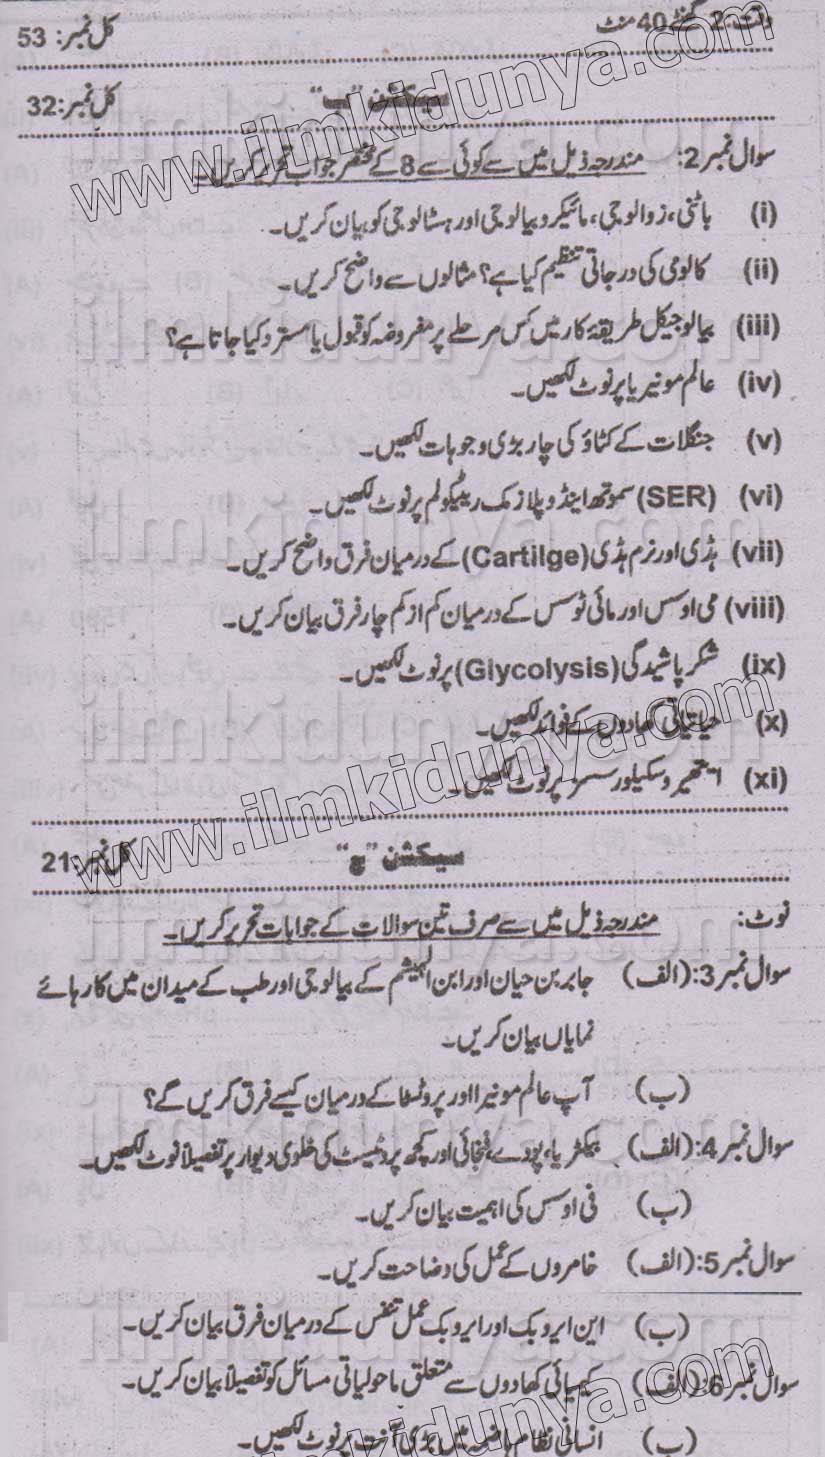 وقت: 2 گھنٹے 40 منٹ کل نمبر: 53
سیکشن "ب" کل نمبر: 32
سوال نمبر 2: مندرجہ ذیل میں سے کوئی سے 8 کے مختصر جواب تحریر کریں۔
(i) باٹنی، زوالوجی، مائیکروبیالوجی اور ہسٹالوجی کو بیان کریں۔
(ii) کالونی کی درجاتی تنظیم کیا ہے؟ مثالوں سے واضح کریں۔
(iii) بیالوجیکل طریقۂ کار میں کس مرحلے پر مفروضہ کو قبول یا مسترد کیا جاتا ہے؟
(iv) عالم مونیرا پر نوٹ لکھیں۔
(v) جنگلات کے کٹاؤ کی چار بڑی وجوہات لکھیں۔
(vi) (SER) سموتھ اینڈوپلازمک ریٹیکولم پر نوٹ لکھیں۔
(vii) ہڈی اور نرم ہڈی (Cartilge) کے درمیان فرق واضح کریں۔
(viii) می اوسس اور مائی ٹوسس کے درمیان کم از کم چار فرق بیان کریں۔
(ix) شکر پاشیدگی (Glycolysis) پر نوٹ لکھیں۔
(x) حیاتیاتی کھادوں کے فوائد لکھیں۔
(xi) ایتھیروسکلیوروسس پر نوٹ لکھیں۔
سیکشن "ج" کل نمبر: 21
نوٹ: مندرجہ ذیل میں سے صرف تین سوالات کے جوابات تحریر کریں۔
سوال نمبر 3: (الف) جابر بن حیان اور ابن الہیشم کے بیالوجی اور طب کے میدان میں کارہائے
نمایاں بیان کریں۔
(ب) آپ عالم مونیرا اور پروٹسٹا کے درمیان کیسے فرق کریں گے؟
سوال نمبر 4: (الف) بیکٹریا، پودے، فنجائی اور کچھ پروٹیسٹ کی خلوی دیوار پر تفصیلاً نوٹ لکھیں۔
(ب) می اوسس کی اہمیت بیان کریں۔
سوال نمبر 5: (الف) خامروں کے عمل کی وضاحت کریں۔
(ب) این ایروبک اور ایروبک عمل تنفس کے درمیان فرق بیان کریں۔
سوال نمبر 6: (الف) کیمیائی کھادوں سے متعلق ماحولیاتی مسائل کو تفصیلاً بیان کریں۔
(ب) انسانی نظام ہاضمہ میں بڑی آنت پر نوٹ لکھیں۔
www.ilmkidunya.com
www.ilmkidunya.com